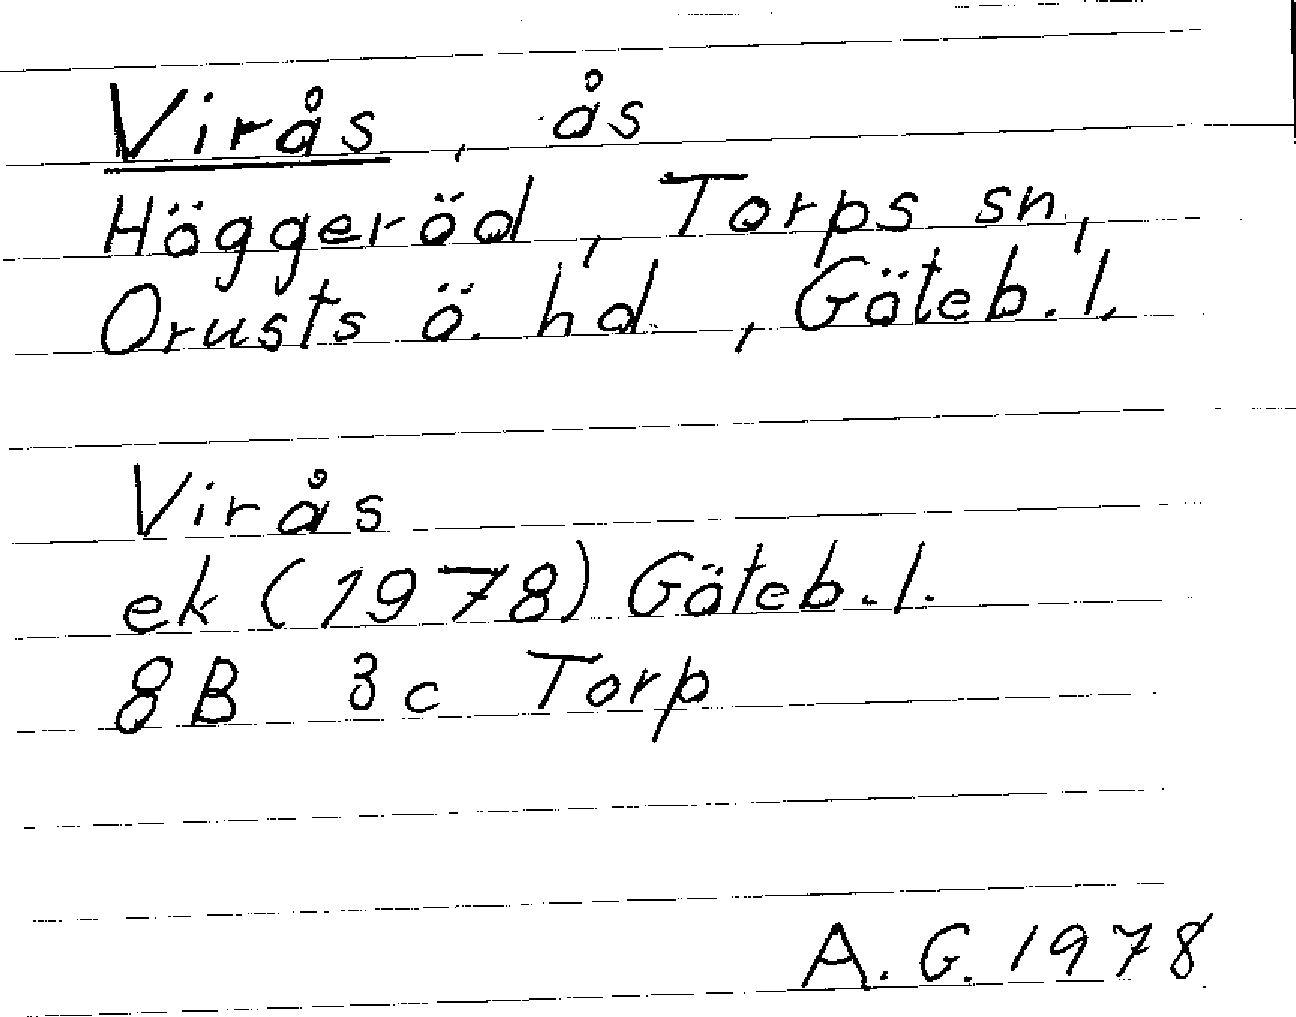 Virås, ås
Höggeröd, Torps sn,
Orusts ö. hd., Göteb. l.
Virås
ek (1978) Göteb. l.
8B 3c Torp
A. G. 1978